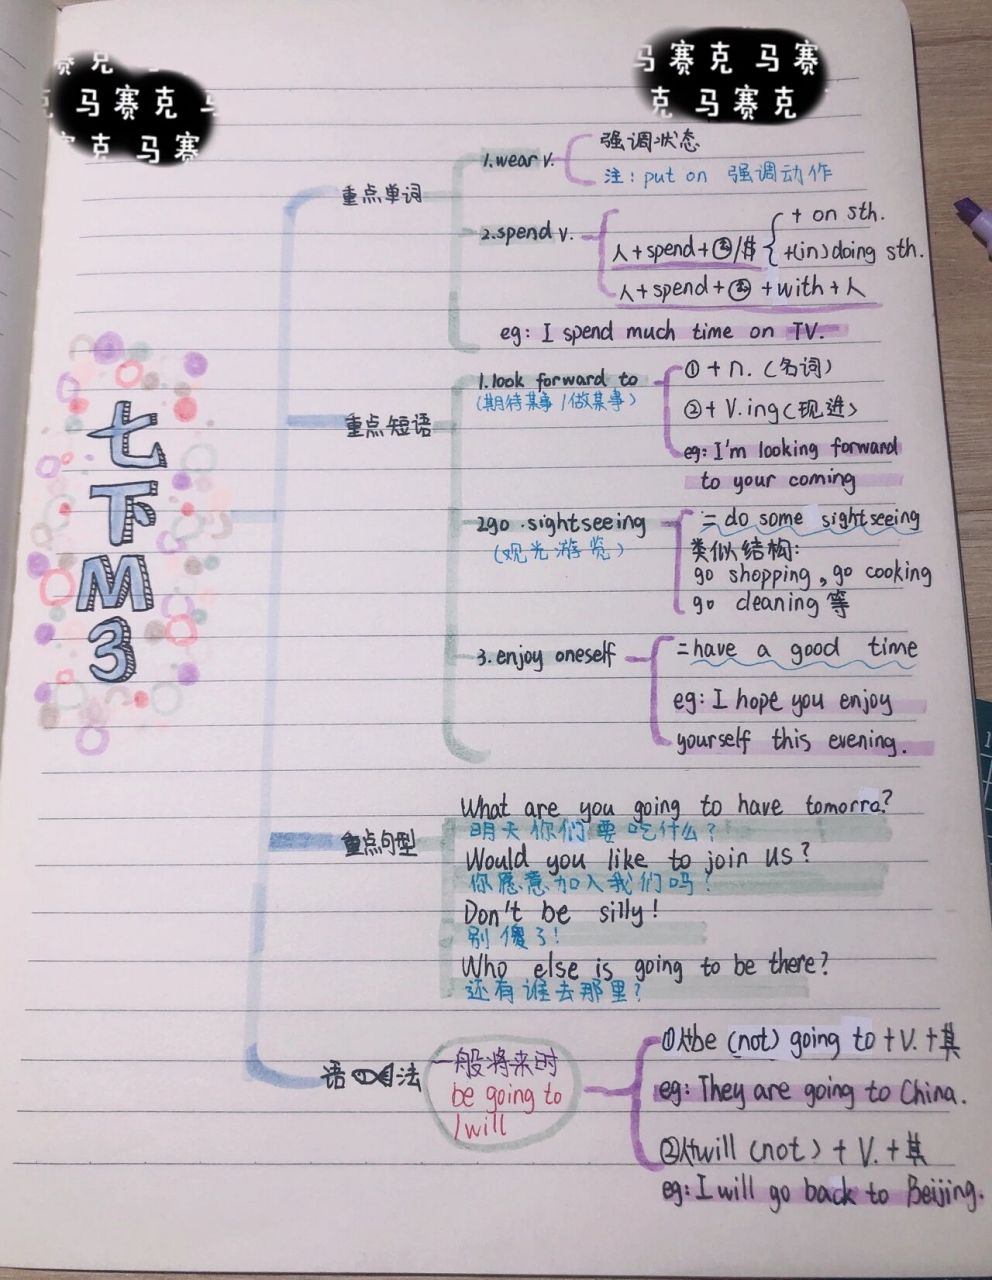 马赛克 马赛
马赛克
马赛克
马赛
七下M3
重点单词
1.wear v.
强调状态
注：put on 强调动作
2.spend v.
人+spend+/$
+ on sth.
+(in)doing sth.
人+spend++with+人
eg: I spend much time on TV.
重点短语
1.look forward to
(期待某事/做某事)
①+n.(名词)
②+V.ing(现进)
eg: I'm looking forward
to your coming
2go.sightseeing
(观光游览)
= do some sightseeing
类似结构:
go shopping, go cooking
go cleaning 等
3.enjoy oneself
=have a good time
eg: I hope you enjoy
yourself this evening.
重点句型
What are you going to have tomorro?
明天你们要吃什么?
Would you like to join us?
你愿意加入我们吗?
Don't be silly!
别傻了!
Who else is going to be there?
还有谁去那里?
语法
一般将来时
be going to
/will
①人+be (not) going to +V.+其
eg: They are going to China.
②人+will (not) + V.+其
eg: I will go back to Beijing.